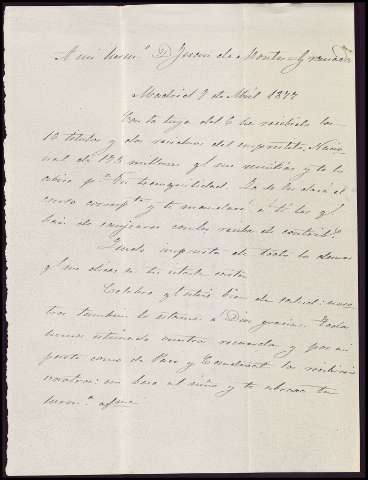 A mi herm.º D. Juan de Montes - Granada
Madrid 9 de Abril 1877
Con la tuya del 6 he recibido los
10 titulos y dos residuos del emprestito Nacio-
nal de 175 millones q.e me remitias y te lo
aviso p.ª tu tranquilidad. Ya se les dará el
curso corresp.te y te mandaré á ti los q.e
han de
Quedo impuesto de todo lo demas
q.e me dices en tu citada carta
Celebro q.e esteis bien de salud: noso-
tros tambien lo estamos á Dios gracias. Todos
hemos estimado vuestro recuerdo y por mi
parte como de Paco y los recibireis
nosotros: un beso al niño y te abraza tu
herm.º afmo